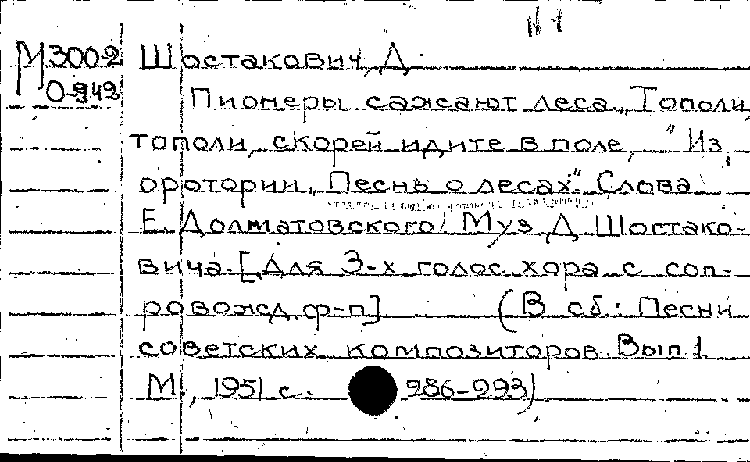 N 1
М 3002 Шостакович, Д.
О-949 Пионеры сажают леса „Тополи,
тополи, скорей идите в поле, " Из
оротории „Песнь о лесах". Слова
Е. Долматовского Муз Д Шостако-
вича. [Для 3-х голос. хора с соп-
ровожд. ф-п] (В сб.: Песни
советских композиторов. Вып 1
М., 1951 с. 286-293)